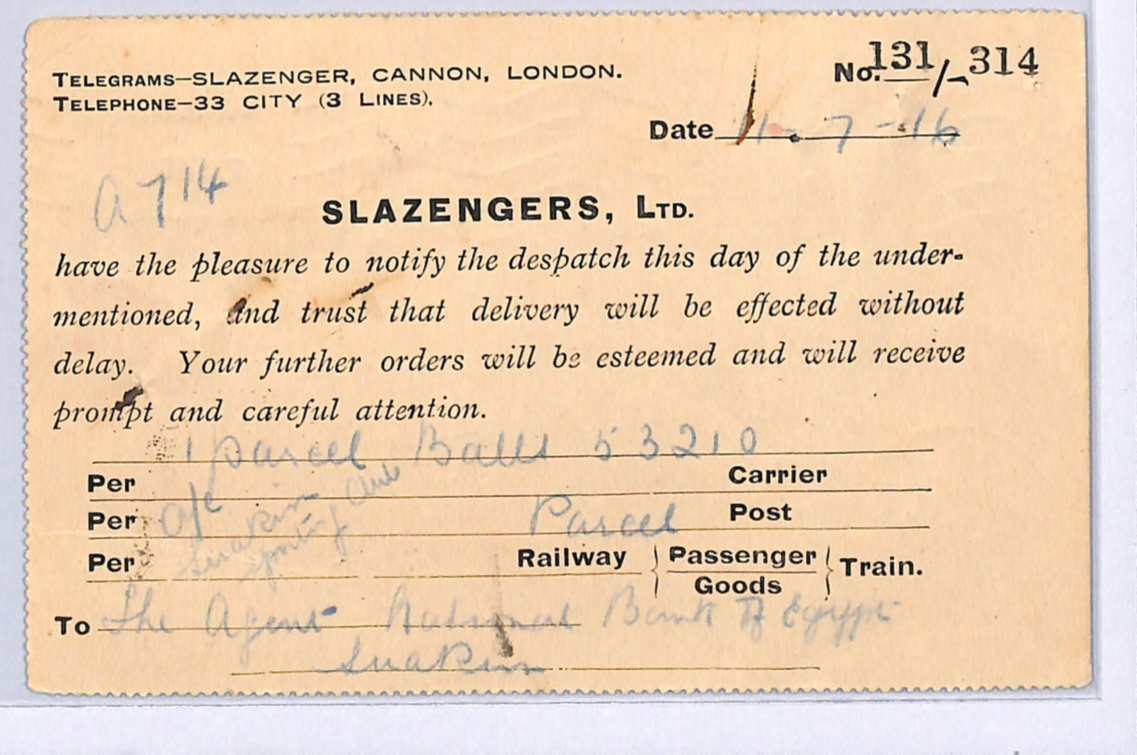 TELEGRAMS—SLAZENGER, CANNON, LONDON.
TELEPHONE—33 CITY (3 LINES).
No. 131/- 314
Date 11-7-16
A 714
SLAZENGERS, LTD.
have the pleasure to notify the despatch this day of the under-
mentioned, and trust that delivery will be effected without
delay. Your further orders will be esteemed and will receive
prompt and careful attention.
1 parcel Balls 53210
Per Carrier
Per a/c Parcel Post
Suakin Sporting Club
Per Railway Passenger Goods Train.
To The Agent National Bank of Egypt
Suakin